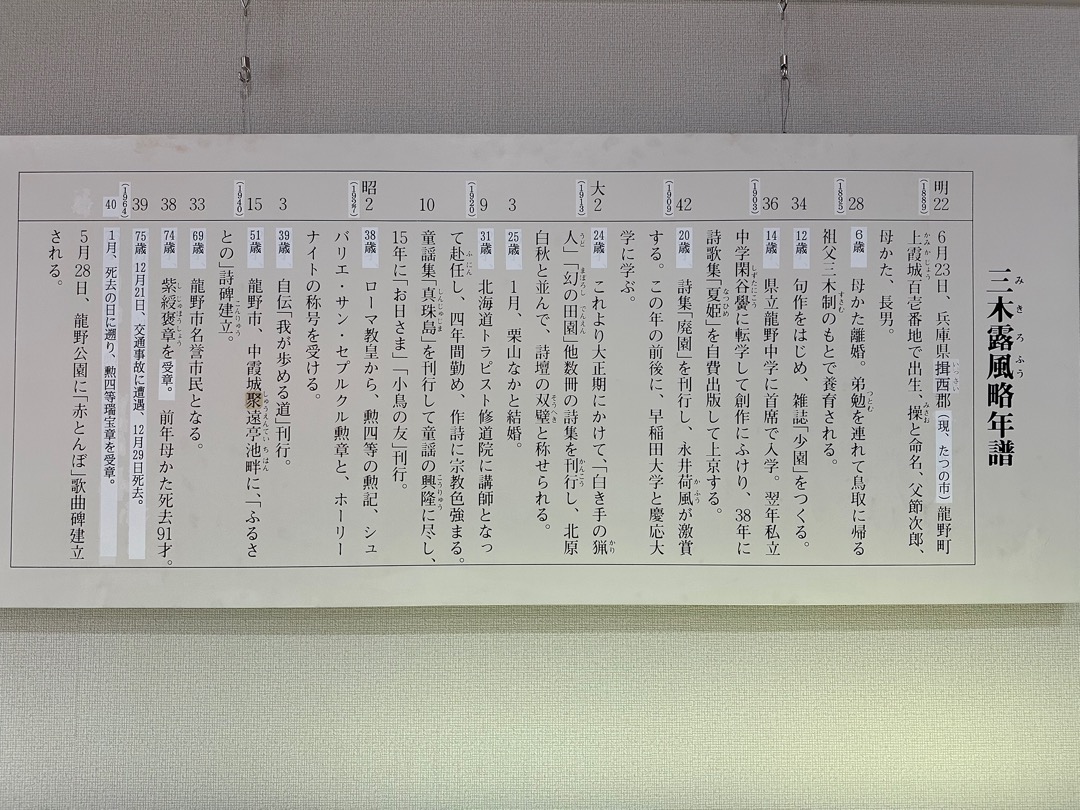 三木露風略年譜
みきろふう
明22 6月23日、兵庫県揖西郡(現、たつの市)龍野町
(1889) 上霞城百壱番地で出生、操と命名、父節次郎、
母かた、長男。
28 6歳 母かた離婚。弟勉を連れて鳥取に帰る
(1895) 祖父三木制のもとで養育される。
34 12歳 句作をはじめ、雑誌「少園」をつくる。
36 14歳 県立龍野中学に首席で入学。翌年私立
(1903) 中学閑谷黌に転学して創作にふけり、38年に
詩歌集「夏姫」を自費出版して上京する。
42 20歳 詩集「廃園」を刊行し、永井荷風が激賞
(1909) する。この年の前後に、早稲田大学と慶応大
学に学ぶ。
大2 24歳 これより大正期にかけて、「白き手の猟
(1913) 人」「幻の田園」他数冊の詩集を刊行し、北原
白秋と並んで、詩壇の双璧と称せられる。
3 25歳 1月、栗山なかと結婚。
9 31歳 北海道トラピスト修道院に講師となっ
(1920) て赴任し、四年間勤め、作詩に宗教色強まる。
10 童謡集「真珠島」を刊行して童謡の興隆に尽し、
15年に「お日さま」「小鳥の友」刊行。
昭2 38歳 ローマ教皇から、勲四等の勲記、シュ
(1927) バリエ・サン・セプルクル勲章と、ホーリー
ナイトの称号を受ける。
3 39歳 自伝「我が歩める道」刊行。
15 51歳 龍野市、中霞城聚遠亭池畔に、「ふるさ
(1940) との」詩碑建立。
33 69歳 龍野市名誉市民となる。
38 74歳 紫綬褒章を受章。 前年母かた死去91才。
39 75歳 12月21日、交通事故に遭遇、12月29日死去。
(1964)
40 1月、死去の日に遡り、勲四等瑞宝章を受章。
5月28日、龍野公園に「赤とんぼ」歌曲碑建立
される。